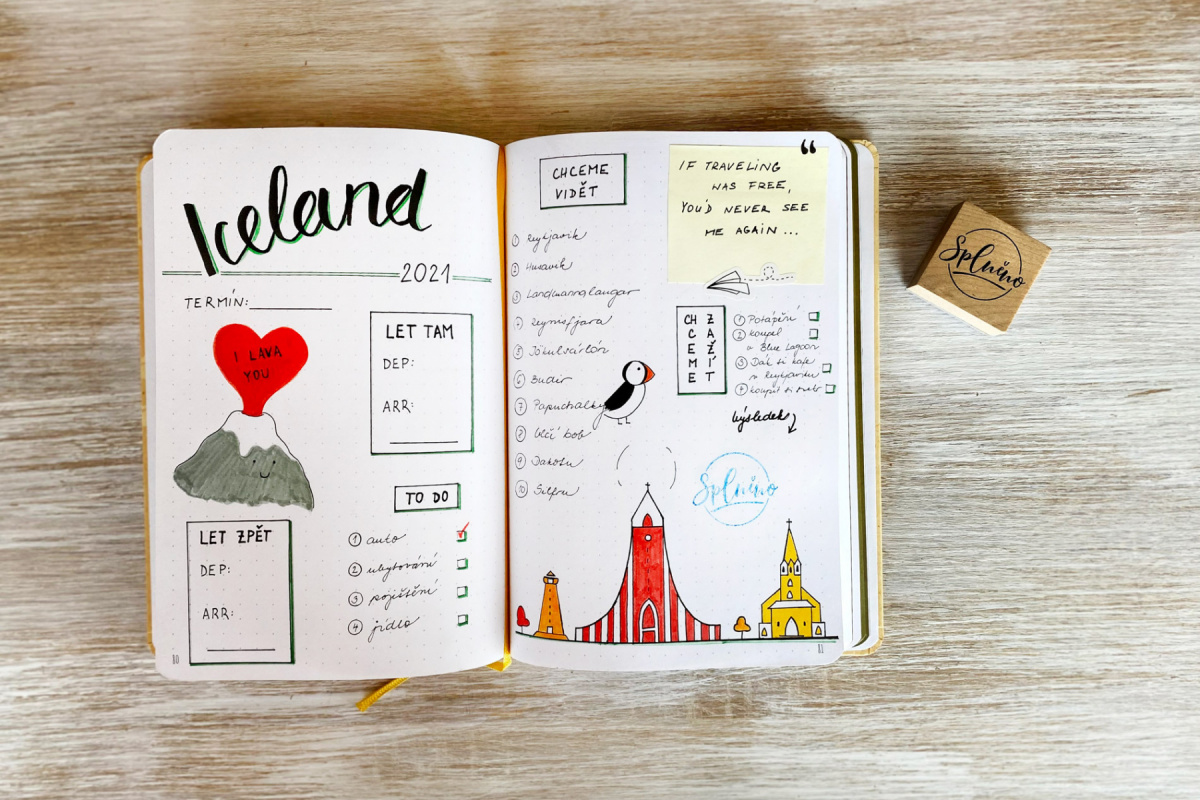 Iceland
2021
TERMÍN:
I LAVA
YOU
LET TAM
DEP:
ARR:
TO DO
① auto
② ubytování
③ pojištění
④ jídlo
LET ZPĚT
DEP:
ARR:
80
CHCEME
VIDĚT
① Reykjavik
② Husavik
③ Landmannalaugar
④ Reynisfjara
⑤ Jökulsárlón
⑥ Budir
⑦ Papuchalky
⑧ Vlčí bob
⑨ Dakotu
⑩ Silfru
“
IF TRAVELING
WAS FREE,
YOU'D NEVER SEE
ME AGAIN...
CHCEME
ZAŽÍT
① Potápění
② koupel
v Blue Lagoon
③ Dát si kafe
v Reykjaviku
④ koupit si svetr
výsledek
Splněno
81
Splněno